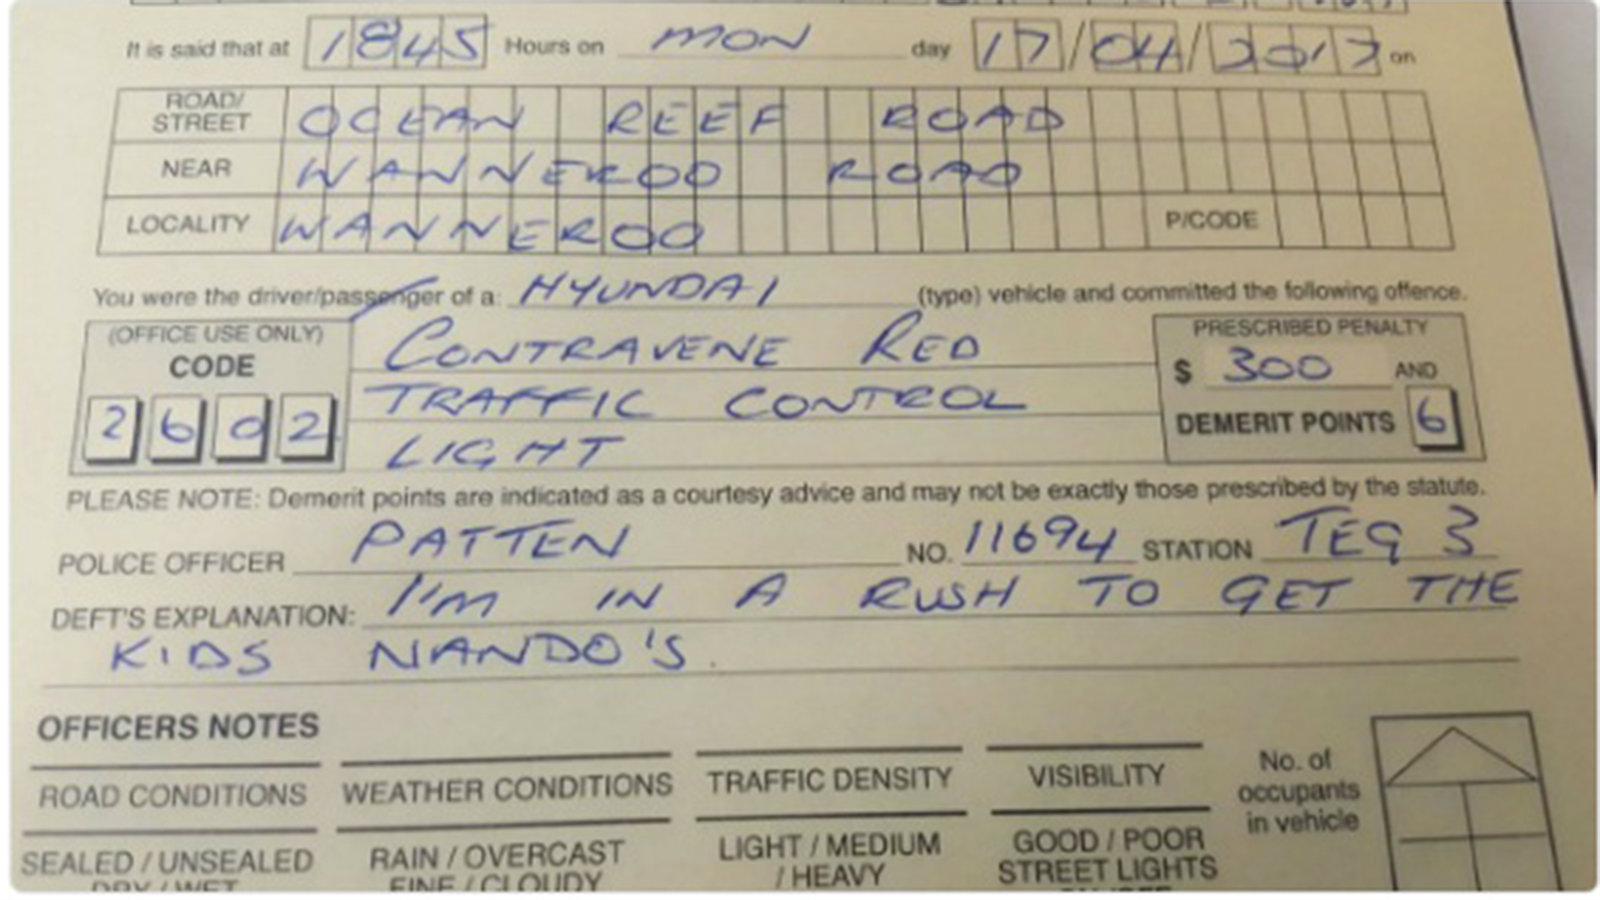 It is said that at 1845 Hours on MON day 17/04/2017 on
ROAD/ STREET OCEAN REEF ROAD
NEAR WANNEROO ROAD
LOCALITY WANNEROO P/CODE
You were the driver/passenger of a: HYUNDAI (type) vehicle and committed the following offence.
(OFFICE USE ONLY)
CODE
2602
CONTRAVENE RED
TRAFFIC CONTROL
LIGHT
PRESCRIBED PENALTY
$ 300 AND
DEMERIT POINTS 6
PLEASE NOTE: Demerit points are indicated as a courtesy advice and may not be exactly those prescribed by the statute.
POLICE OFFICER PATTEN NO. 11694 STATION TEG 3
DEFT'S EXPLANATION: I'M IN A RUSH TO GET THE
KIDS NANDO'S.
OFFICERS NOTES
ROAD CONDITIONS WEATHER CONDITIONS TRAFFIC DENSITY VISIBILITY
No. of
occupants
in vehicle
SEALED / UNSEALED RAIN / OVERCAST LIGHT / MEDIUM GOOD / POOR
DRY / WET FINE / CLOUDY / HEAVY STREET LIGHTS